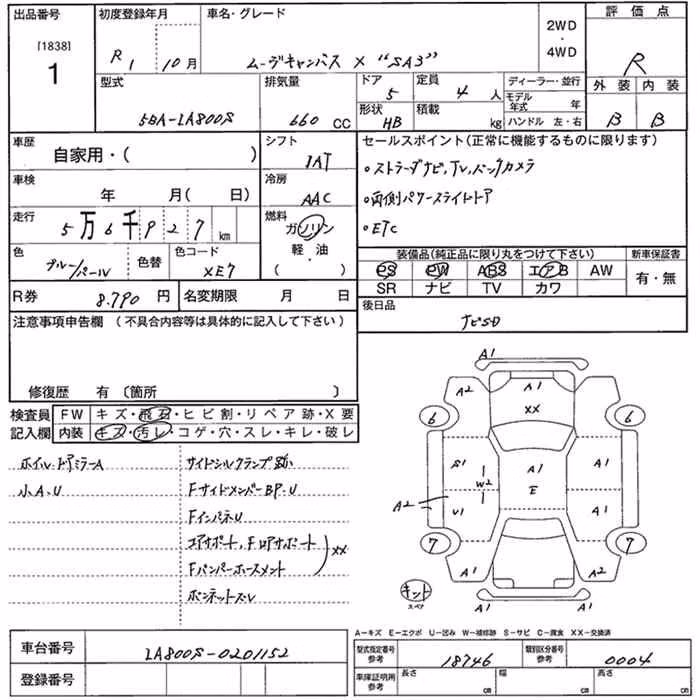 出品番号
[1838]
1
初度登録年月
R1 10月
車名・グレード
ムーヴキャンバス X "SA3"
2WD
・
4WD
評価点
R
型式
5BA-LA800S
排気量
660 CC
ドア
5
定員
4 人
形状
HB
積載
kg
ディーラー・並行
モデル年式 年
ハンドル 左・右
外装 内装
B B
車歴
自家用・( )
シフト
IAT
セールスポイント(正常に機能するものに限ります)
・ストラーダナビ,TV,バックカメラ
・両側パワースライドドア
・ETC
車検
年 月( 日)
冷房
AAC
走行
5万6千927 km
燃料
ガソリン
軽・油
( )
色
ブルー/パール
色替
色コード
XE7
装備品(純正品に限り丸をつけて下さい)
PS PW ABS エアB AW
SR ナビ TV カワ
新車保証書
有・無
R券 8.790 円
名変期限 月 日
後日品
ナビSD
注意事項申告欄(不具合内容等は具体的に記入して下さい)
修復歴 有 〔箇所 〕
検査員
記入欄
FW キズ・飛石・ヒビ割・リペア跡・X要
内装 キズ・汚レ・コゲ・穴・スレ・キレ・破レ
ホイル・ドアミラーA
小A.U
サイドシルクランプ跡
FサイドメンバーBP.U
FインパネU
コアサポート,Fロアサポート
XX
Fバンパーホースメント
ボンネットズレ
A1
A2
A1
XX
6
6
S1
W2
A1
E
A1
A2
U1
A1
7
7
A1
A1
A2
A1
キット
スペア
A-キズ E-エクボ U-凹み W-補修跡 S-サビ C-腐食 XX-交換済
車台番号
LA800S-0201152
登録番号
型式指定番号
参考
18746
類別区分番号
参考
0004
車庫証明用
参考
長さ cm
幅 cm
高さ cm